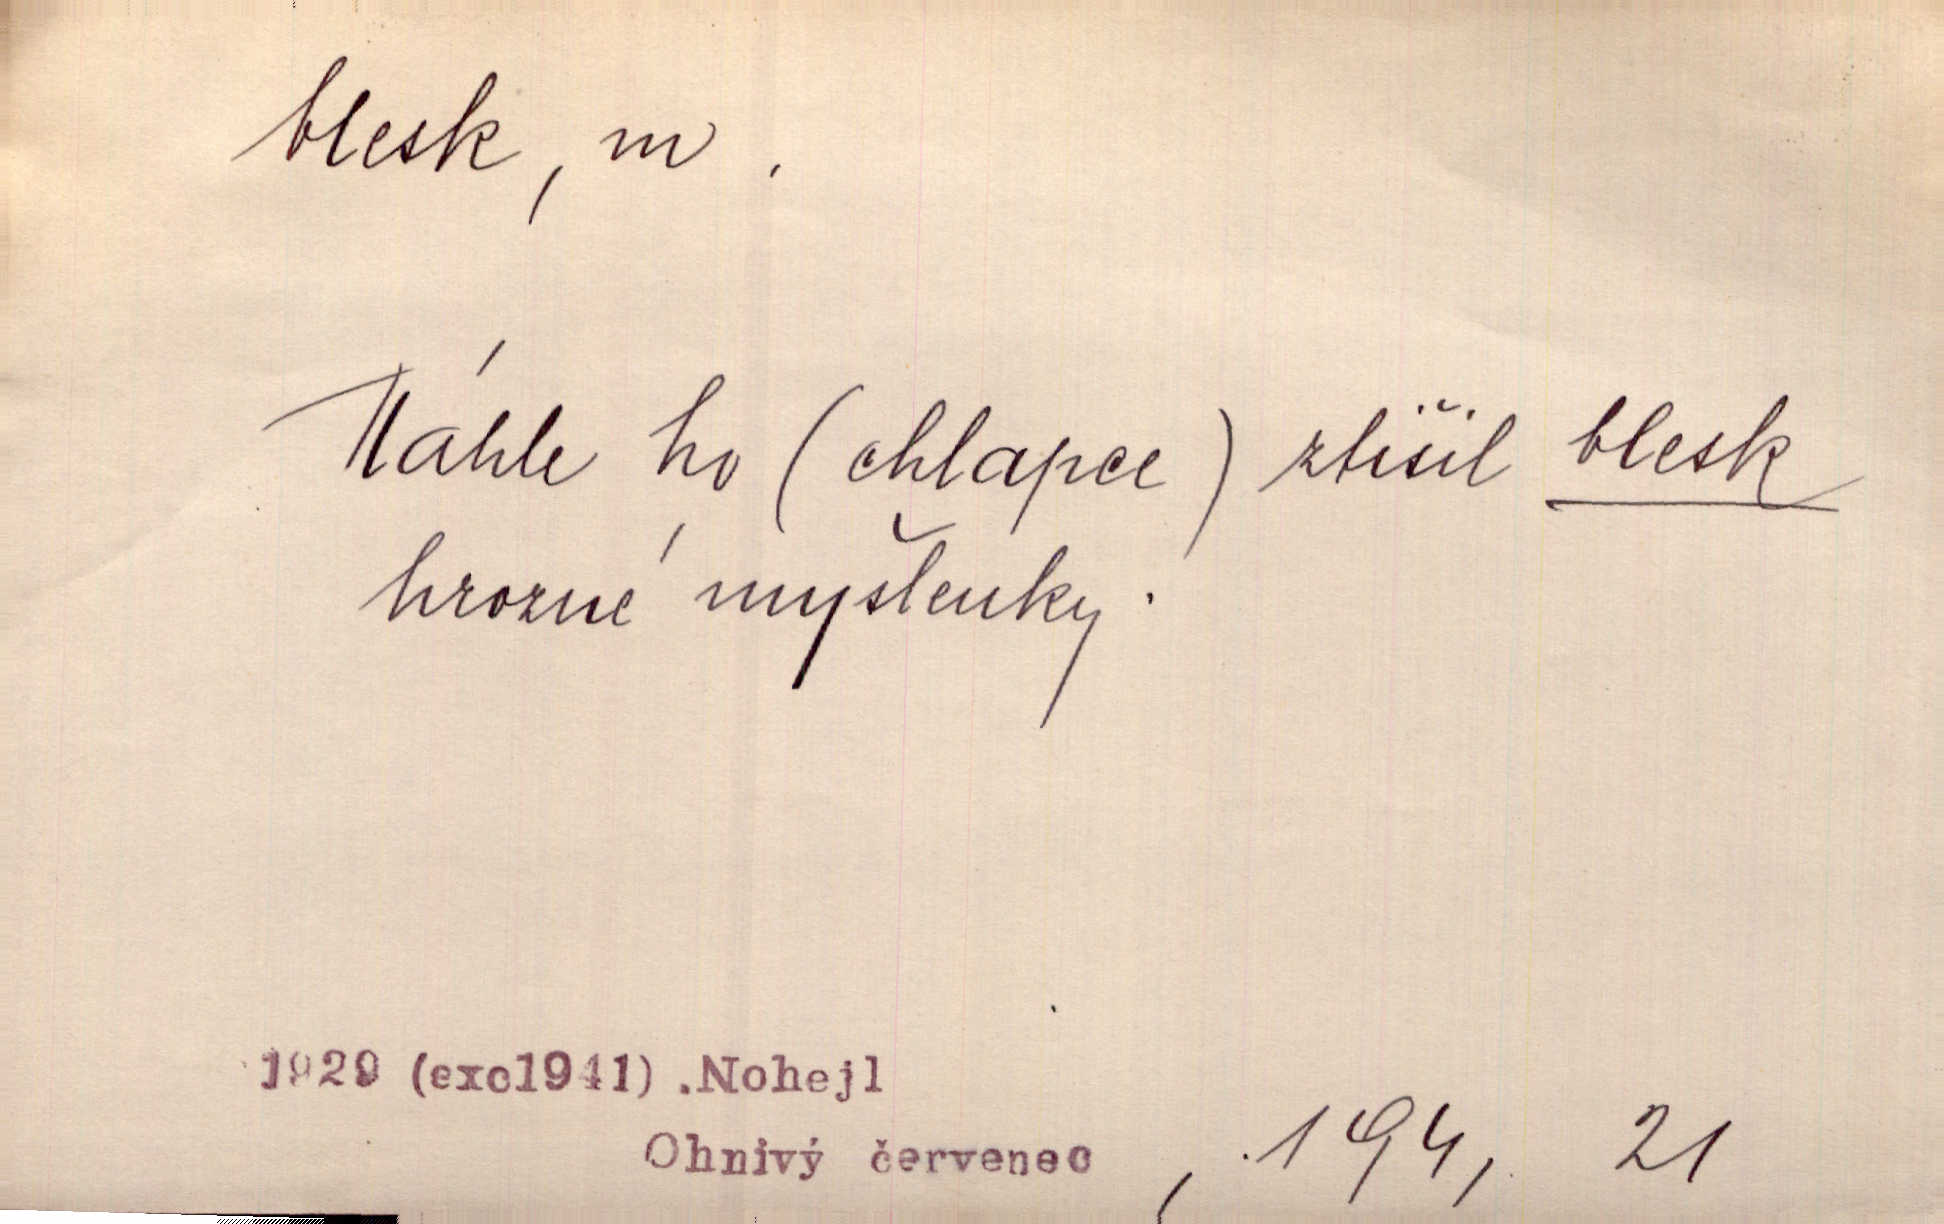 blesk, m.
Náhle ho (chlapce) ztišil blesk
hrozné myšlenky.
1929 (exc1941). Nohejl
Ohnivý červenec , 194, 21